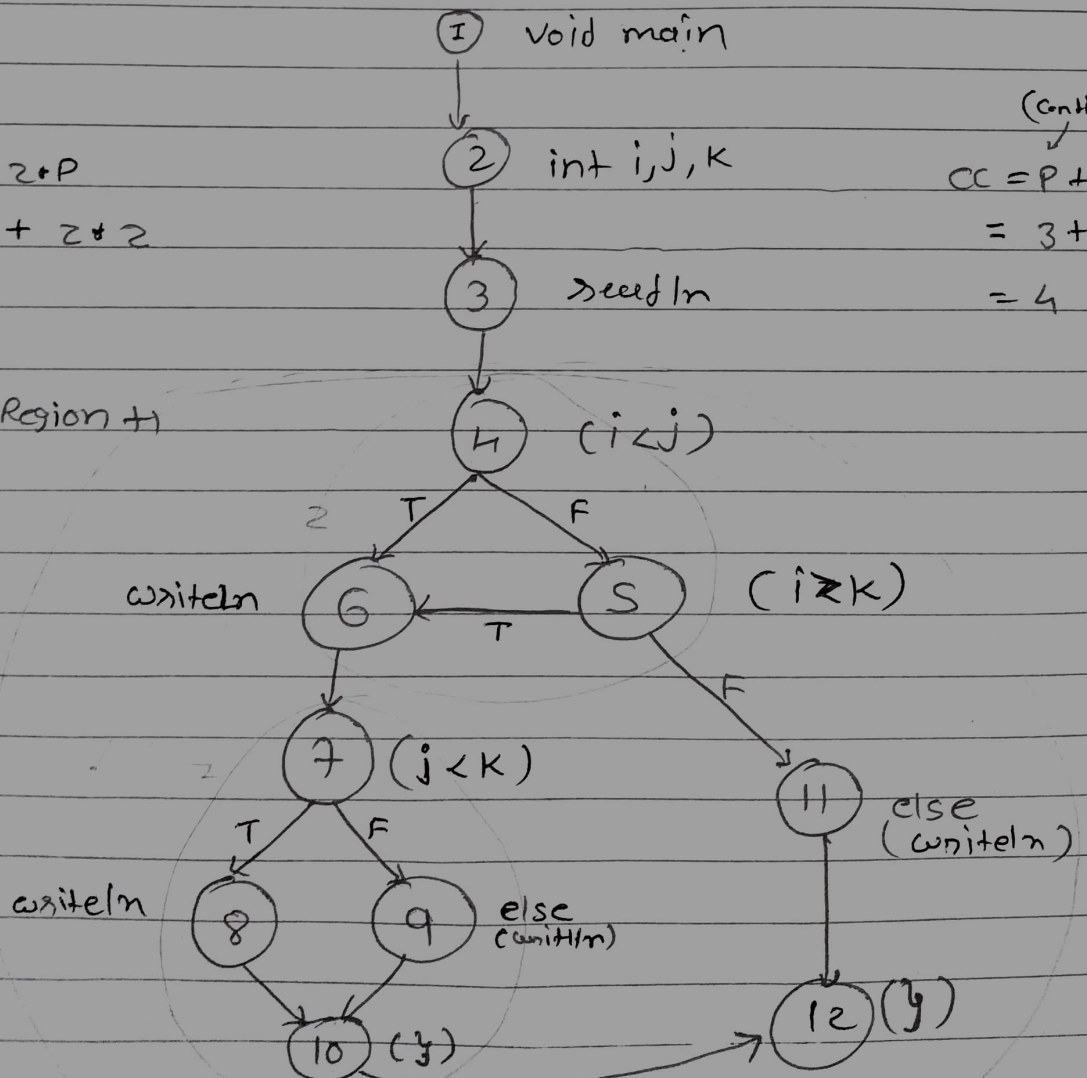 1 void main
(Conti
2 int i, j, k
2*P
CC = P +
+ 2*2
= 3 +
3 readln
= 4
Region +1
4 (i<j)
T F
2
writeln 6 T 5 (i≥k)
F
7 (j<k)
2
11 else
(writeln)
T F
writeln 8 9 else
(writeln)
10 (})
12 (})